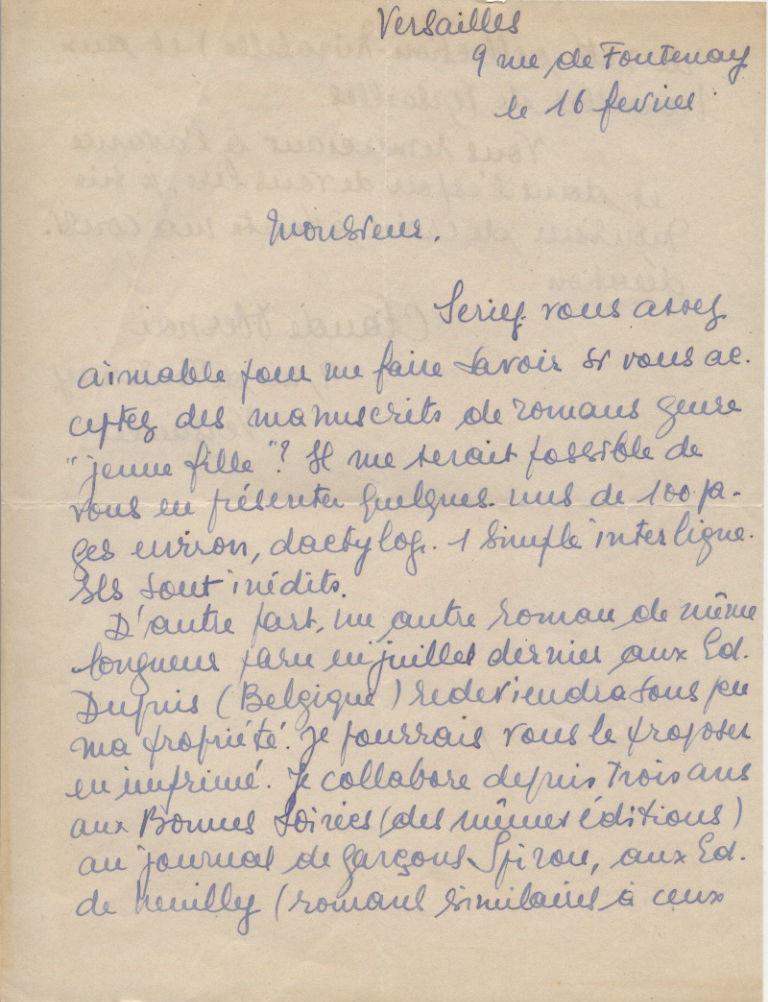 Versailles
9 rue de Fontenay
le 16 fevrier.
Monsieur.
Seriez vous assez
aimable pour me faire savoir si vous ac-
ceptez des manuscrits de romans genre
"jeune fille"? Il me serait possible de
vous en présenter quelques-uns de 100 pa-
ges environ, dactylog. 1 simple interligne.
Ils sont inédits.
D'autre part, un autre roman de même
longueur paru en juillet dernier aux Ed.
Dupuis (Belgique) redeviendra sous peu
ma propriété. Je pourrais vous le proposer
en imprimé. Je collabore depuis trois ans
aux Bonnes Soirées (des mêmes éditions)
au journal de garçons Spirou, aux Ed.
de Neuilly (romans similaires à ceux